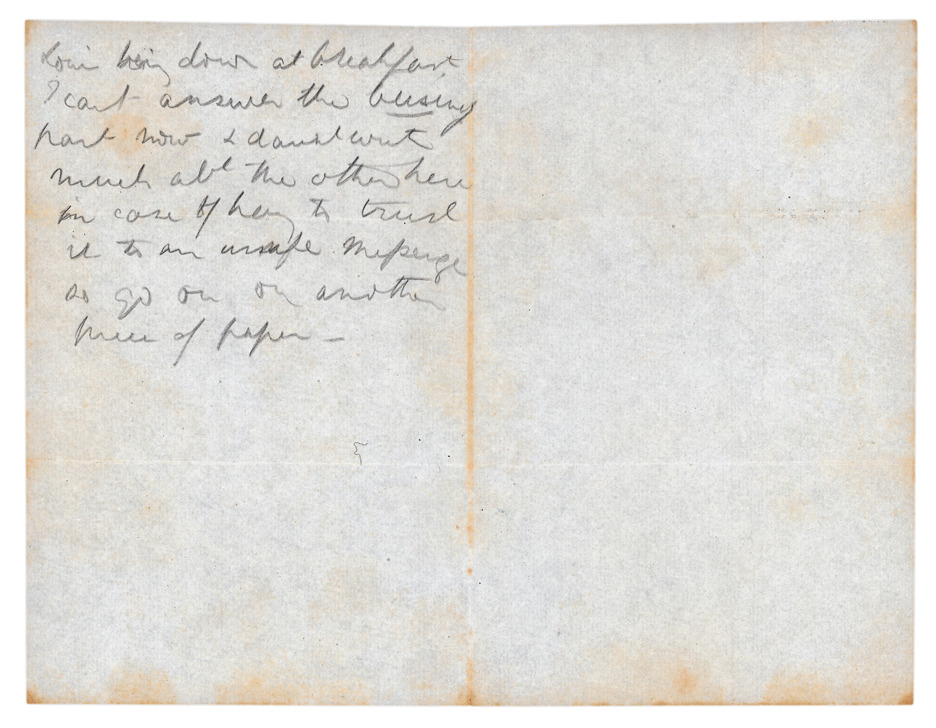 being down at breakfast
I cant answer the business
part now & daual wnt
much abt the other here
in case of havg to trust
it to an unsafe messenger
so go on on another
piece of paper —